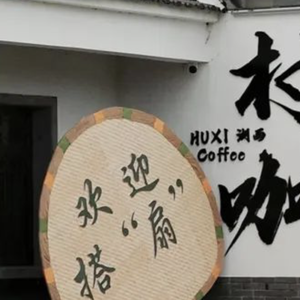 HUXI 湖西
Coffee
咖
欢迎
搭“扇”